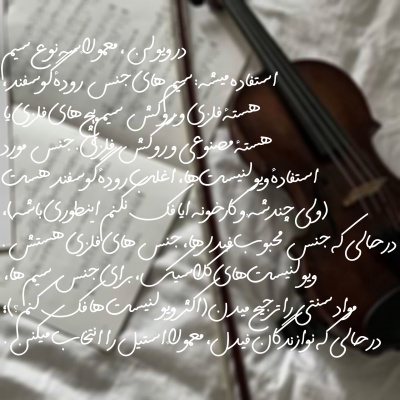 در ویولن، معمولا سه نوع سیم
استفاده میشه: سیم های جنس رودهٔ گوسفند،
هستهٔ فلزی و روکش سیم پیچ های فلزی یا
هستهٔ مصنوعی و روکش فلزی. جنس مورد
استفادهٔ ویولنیست ها، اغلب رودهٔ گوسفند هست
(ولی چندشه و کارخونه ایا فک نکنم اینطوری باشه)،
درحالی که جنس محبوب فیدلرها، جنس های فلزی هستش.
ویولنیست های کلاسیک، برای جنس سیم ها،
مواد سنتی را ترجیح میدن (اکثر ویولنیست ها فک کنم؟)؛
درحالی که نوازندگان فیدل، معمولا استیل را انتخاب میکنن.